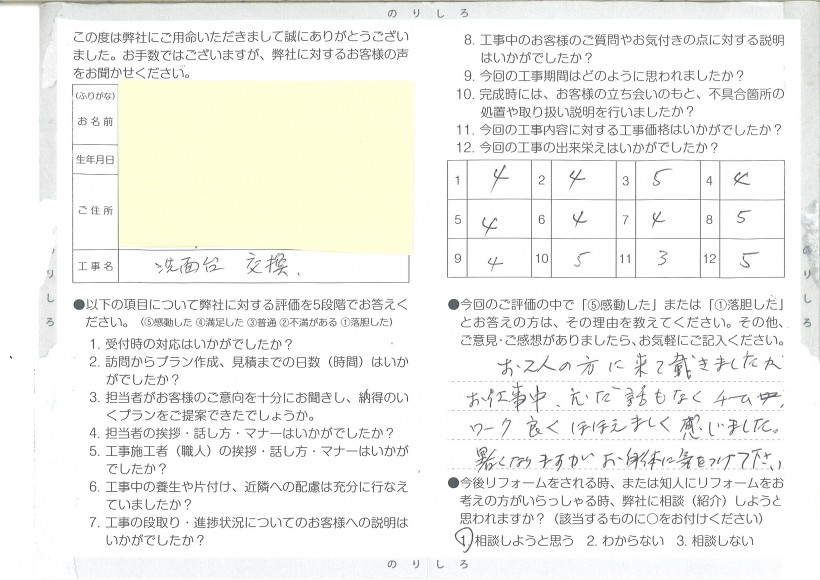 のりしろ
この度は弊社にご用命いただきまして誠にありがとうござい
ました。お手数ではございますが、弊社に対するお客様の声
をお聞かせください。
(ふりがな)
お名前
生年月日
ご住所
工事名 洗面台 交換、
●以下の項目について弊社に対する評価を5段階でお答えく
ださい。(⑤感動した ④満足した ③普通 ②不満がある ①落胆した)
1. 受付時の対応はいかがでしたか?
2. 訪問からプラン作成、見積までの日数(時間)はいか
がでしたか?
3. 担当者がお客様のご意向を十分にお聞きし、納得のい
くプランをご提案できたでしょうか。
4. 担当者の挨拶・話し方・マナーはいかがでしたか?
5. 工事施工者(職人)の挨拶・話し方・マナーはいかが
でしたか?
6. 工事中の養生や片付け、近隣への配慮は充分に行なえ
ていましたか?
7. 工事の段取り・進捗状況についてのお客様への説明は
いかがでしたか?
8. 工事中のお客様のご質問やお気付きの点に対する説明
はいかがでしたか?
9. 今回の工事期間はどのように思われましたか?
10. 完成時には、お客様の立ち会いのもと、不具合箇所の
処置や取り扱い説明を行いましたか?
11. 今回の工事内容に対する工事価格はいかがでしたか?
12. 今回の工事の出来栄えはいかがでしたか?
1 4 2 4 3 5 4 4
5 4 6 4 7 4 8 5
9 4 10 5 11 3 12 5
●今回のご評価の中で「⑤感動した」または「①落胆した」
とお答えの方は、その理由を教えてください。その他、
ご意見・ご感想がありましたら、お気軽にご記入ください。
お2人の方に来て戴きましたが
お仕事中、むだ話もなくチーム
ワーク良くほほえましく感じました。
暑くなりますが お身体に気をつけて下さい
●今後リフォームをされる時、または知人にリフォームをお
考えの方がいらっしゃる時、弊社に相談(紹介)しようと
思われますか?(該当するものに○をお付けください)
1. 相談しようと思う 2. わからない 3. 相談しない
のりしろ
のりしろ
のりしろ